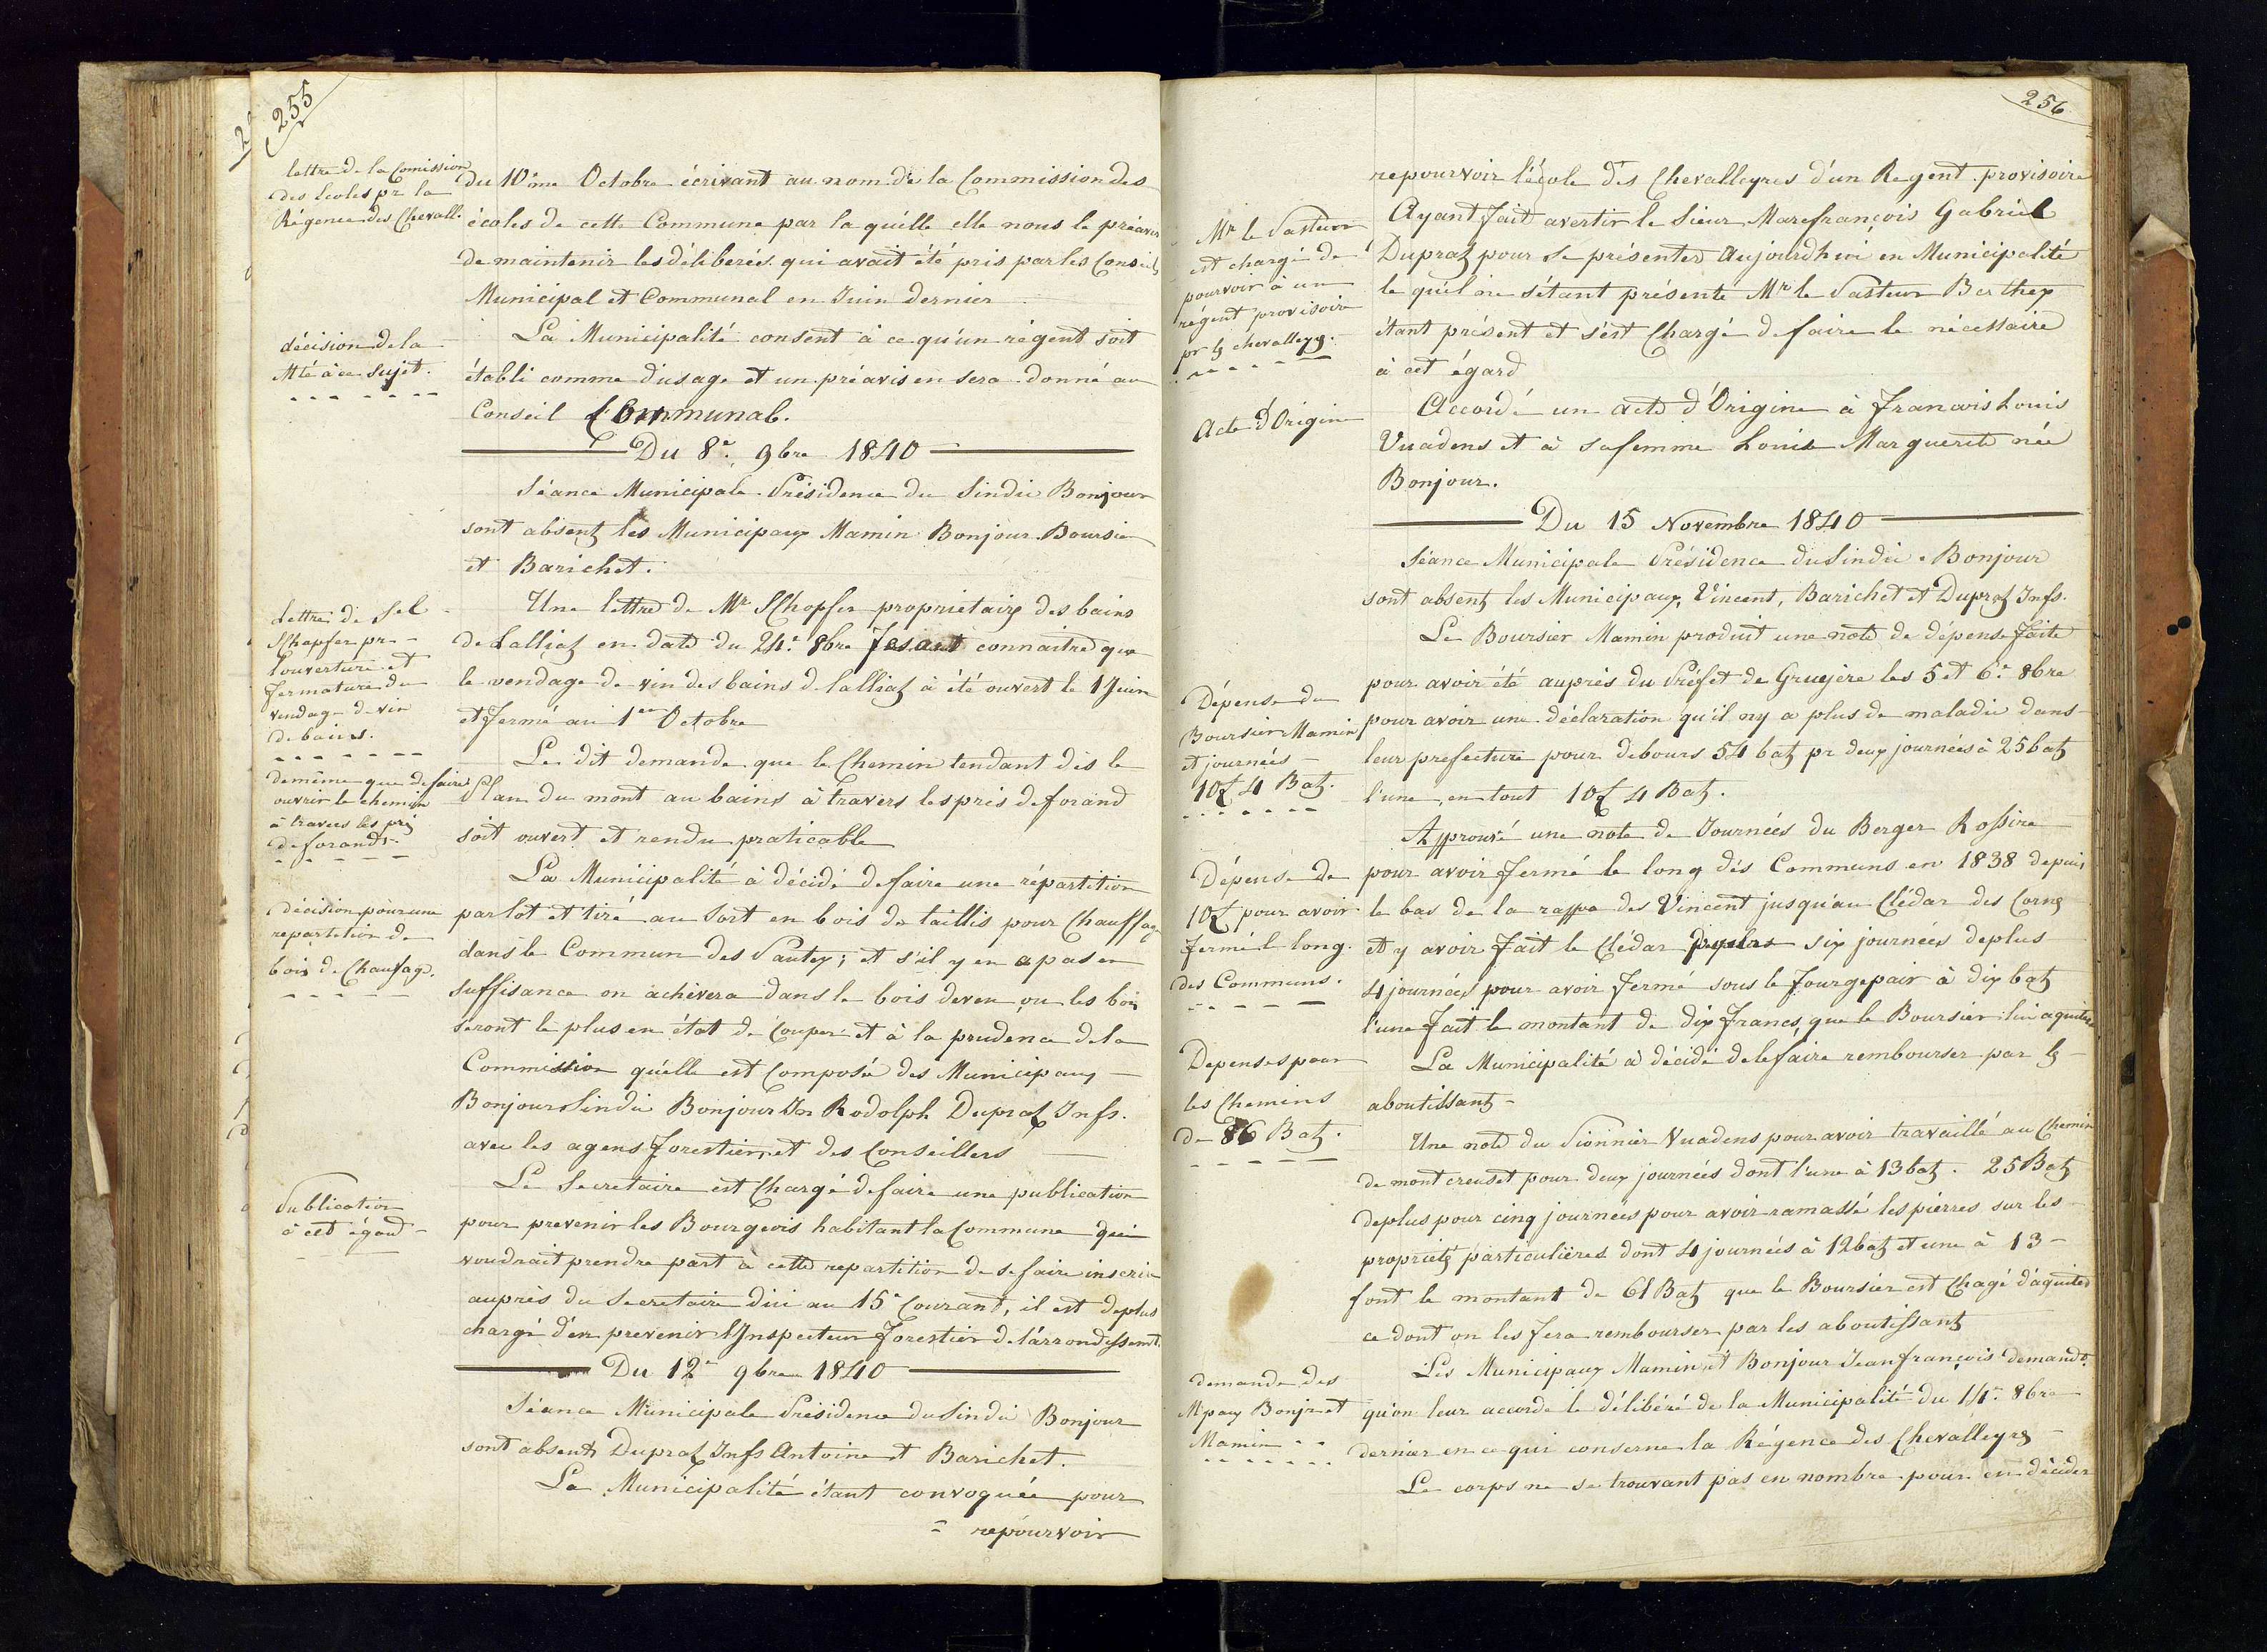 255
lettre de la Comission
des écoles pr la
Régence des Chevall.
du 10ème Octobre écrivant au nom de la Commission des
écoles de cette Commune par la quélle elle nous le préavis
de maintenir les déliberés qui avait été pris par les Conseils
Municipal et Communal en Juin dernier
décision de la
Mté à ce sujet.
La Municipalité consent à ce qu'un régent soit
établi comme d'usage et un préavis en sera donné au
Conseil Communal.
Du 8e. 9bre 1840
Séance Municipale Présidence du Sindic Bonjour
sont absent les Municipaux Mamin Bonjour Boursier
et Barichet.
Lettre de Sel
Schopfer pr
l'ouverture et
fermature du
vendage de vin
de bains.
Une lettre de Mr Schopfer propriétaire des bains
de Lalliaz en date du 24e. 8bre fesant connaitre que
le vendage de vin des bains de lalliaz à été ouvert le 1 Juin
et fermé au 1er Octobre
demême que de faire
ouvrir le chemin
à travers les préz
de forands
Le dit demande que le Chemin tendant dès le
Plan du mont au bains à travers les prés de forand
soit ouvert et rendu praticable
décision pour une
repartition de
bois de Chaufage.
La Municipalité à décidé de faire une répartition
par lot et tiré au Sort en bois de taillis pour Chauffage
dans le Commun des Pautex; et s'il y en a pas en
suffisance on achèvera dans le bois deven, ou les bois
seront le plus en état de Couper et à la prudence de la
Commission quélle est Composée des Municipaux
Bonjour Sindic Bonjour Jn Rodolph Dupraz Jnfs.
avec les agens forestier et des Conseillers
Publication
à cet égard
Le Secretaire est Chargé de faire une publication
pour prevenir les Bourgeois habitant la Commune qui
voudrait prendre part à cette repartition de se faire inscrire
auprès du Secretaire dici au 15e Courant, il est deplus
chargé d'en prevenir l'Inspecteur forestier de l'arrondissemt.
Du 12e 9bre 1840
Séance Municipale Présidence du Sindic Bonjour
sont absents Dupraz Jnfs Antoine et Barichet.
La Municipalité étant convoquée pour
repourvoir
256
repourvoir l'école des Chevalleyres d'un Régent provisoire
Mr le Pasteur
est chargé de
pourvoir à un
régent provisoire
pr lz chevalleyz.
Ayant fait avertir le Sieur Marcfrançois Gabriel
Dupraz pour se présenter Aujourdhui en Municipalité
le quél ne s'étant présenté Mr le Pasteur Berthex
étant présent et s'est Chargé de faire le nécessaire
à cet égard
Acte d'Origine
Accordé un acte d'Origine à francois Louis
Vuadens et à sa femme Louise Marguerite née
Bonjour.
Du 15 Novembre 1840
Séance Municipale Présidence du Sindic Bonjour
sont absentz les Municipaux, Vincent, Barichet et Dupraz Jnfs.
Dépense du
Boursier Mamin
et journées
10£ 4 Batz.
Le Boursier Mamin produit une note de dépense faite
pour avoir été auprès du Préfet de Gruyère les 5 et 6e. 8bre
pour avoir une déclaration qu'il ny a plus de maladie dans
leur prefecture pour debours 54 batz pr deux journées à 25 batz
l'une, en tout 10£ 4 Batz.
Dépense de
10£ pour avoir
fermé le long
des Communs.
Approuvé une note de Journées du Berger Rossire
pour avoir fermé le long dès Communs en 1838 depuis
le bas de la rappe des Vincent jusqu'au Clédar des Cornz
et y avoir fait le Clédar six journées deplus
4 journées pour avoir fermé sous le fourgepair à dix batz
l'une fait le montant de dix francs, que le Boursier lui aquitera
La Municipalité à décidé de le faire rembourser par lz
aboutissant
Depenses pour
les Chemins
de 86 Batz.
Une note du Pionnier Vuadens pour avoir travaillé au Chemin
de mont creuset pour deux journées dont l'une à 13 batz. 25 Batz
deplus pour cinq journées pour avoir ramassé les pierres sur les
proprietz particulières dont 4 journées à 12 batz et une à 13
font le montant de 61 Batz que le Boursier est Chagé d'aquiter
ce dont on les fera rembourser par les aboutissantz
demande des
Mpaux Bonjr et
Mamin
Les Municipaux Mamin et Bonjour Jean françois demandt.
qu'on leur accorde le délibéré de la Municipalité du 14e. 8bre
dernier en ce qui conserne la Régence des Chevalleyrs
Le corps ne se trouvant pas en nombre pour en décider